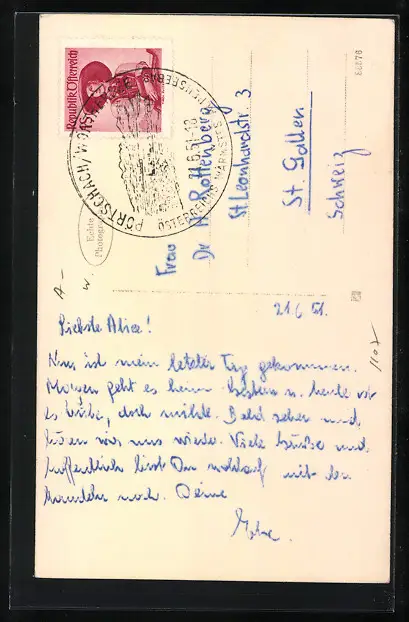 Republik Österreich
PÖRTSCHACH/WÖRTHERSEE
21.6.51.-18
ÖSTERREICHS WÄRMSTER ALPENSEE
Echte
Photographie
Frau
Dr Rottenberg
St. Leonhardstr. 3
St. Gallen
Schweiz
21.6.51.
Liebste Alice!
Nun ist mein letzter Tag gekommen.
Morgen geht es heim u. heute
es trübe, doch milde. Bald sehen und
wir uns wieder. Viele Grüsse und
hoffentlich bist Du wohlauf mit den
noch. Deine
1107